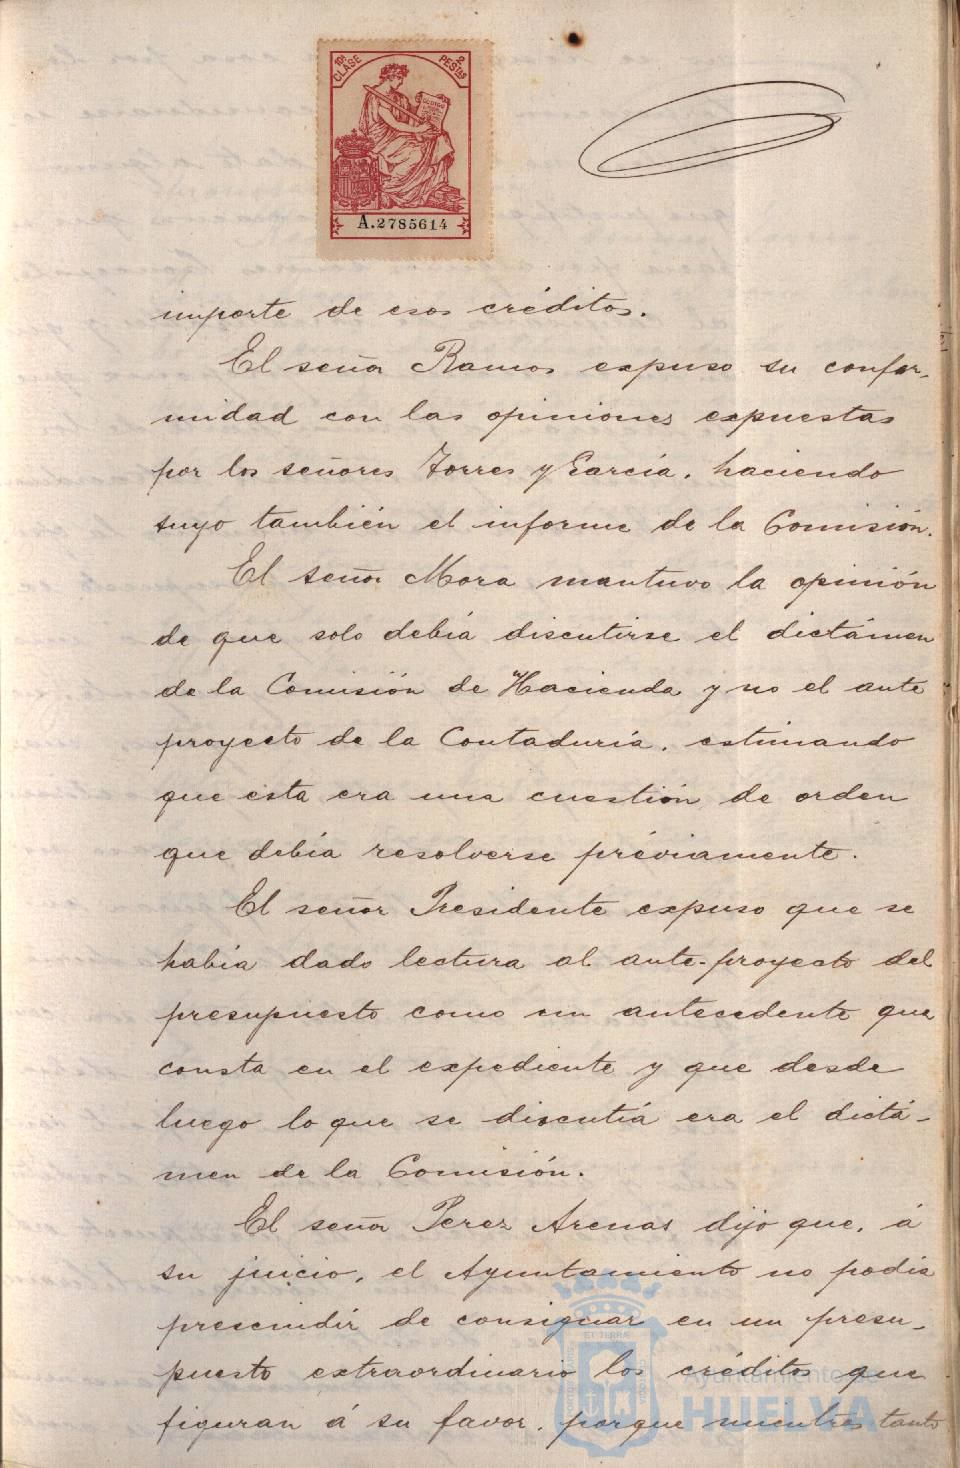 10ª CLASE
2 PESTAS
CODIGO
A.2785614
importe de esos créditos.
El señor Ramos expuso su confor-
midad con las opiniones expuestas
por los señores Torres y García, haciendo
suyo también el informe de la Comisión.
El señor Mora mantuvo la opinión
de que solo debía discutirse el dictámen
de la Comisión de Hacienda y no el ante
proyecto de la Contaduría, estimando
que esta era una cuestión de orden
que debía resolverse préviamente.
El señor Presidente expuso que se
había dado lectura al ante-proyecto del
presupuesto como un antecedente que
consta en el expediente y que desde
luego lo que se discutía era el dictá-
men de la Comisión.
El señor Perez Arenas dijo que, á
su juicio, el Ayuntamiento no podia
prescindir de consignar en un presu-
puesto extraordinario los créditos que
figuran á su favor, porque mientres tanto
Ayuntamiento de
HUELVA